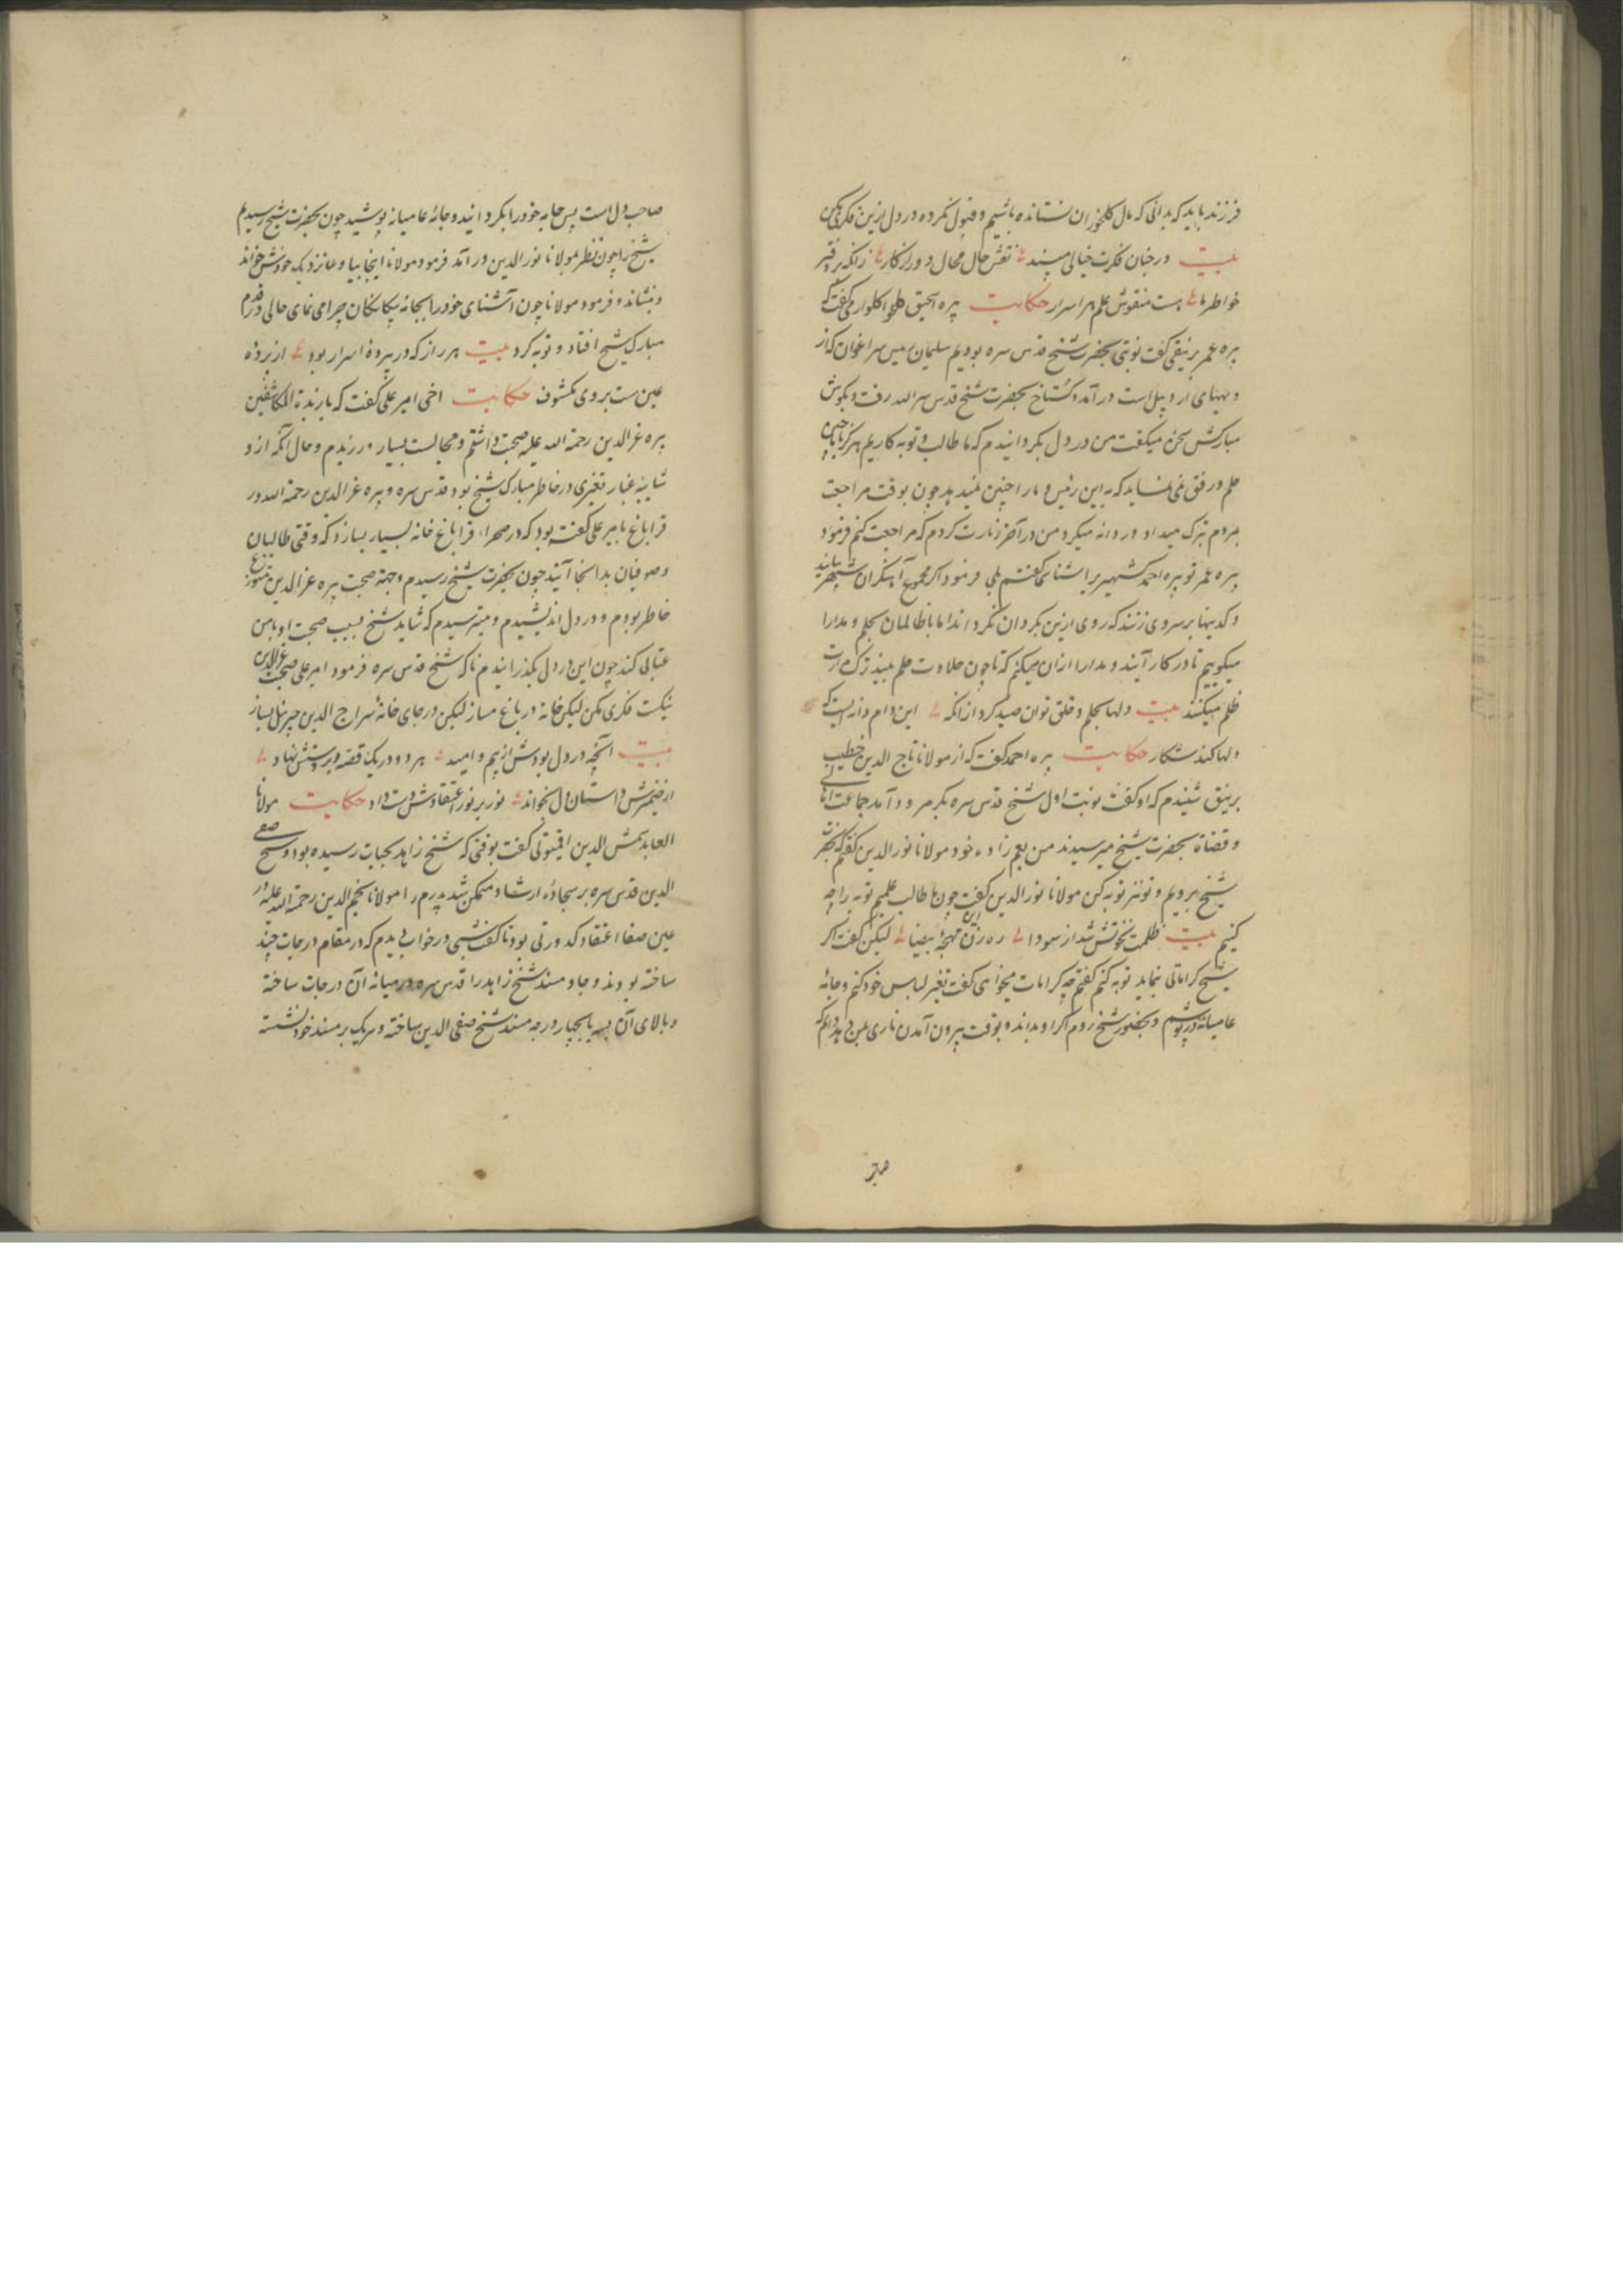 فرزند باید که بدانی که مال کلخوران نستانده باشیم و قبول نکرده در دل ازین فکری مکن
بیت در جنان فکرت خیالی مبند نقش حال محال دور از کار زانکه بر دفتر
خواطر ما هست منقوش علم هر اسرار حکایت پیره اسحق کلخوارمی گفت که
پیره عمر برنیقی گفت نوبتی بحضرت شیخ قدس سره بودیم سلیمان رییس سراغوان که از
دیههای اردبیل است درآمد و گستاخ بحضرت شیخ قدس سرالله رفت و بگوش
مبارکش سخن میگفت من در دل بگردانیدم که ما طالب و توبه کاریم هرگز ما را چنین
حلم و رفق نمی نماید که به این رئیس و ما را چنین نمیدهد چون بوقت مراجعت
مردم تبرک میداد و روانه میکرد من در آخر زیارت کردم که مراجعت کنم فرمود
پیره عمر تو پیره احمد شهیر را شناسی گفتم بلی فرمود اگر مجموع آهنگران شهر بیایند
و کدینها بر سر وی زنند که روی ازین بگردان نگرداند اما با ظالمان بحلم و مدارا
میگوییم تا در کار آیند و مدارا از آن میکنم که تا چون حلاوت حلم بینند ترک مرارت
ظلم میکنند بیت دلها بحلم و خلق توان صید کرد از آنکه این دام و دانه ایست که
دلها کند شکار حکایت پیره احمد گفت که از مولانا تاج الدین خطیب
برنیق شنیدم که او گفت نوبت اول شیخ قدس سره بکرمرود آمد جماعت اهالی
و قضاة بحضرت شیخ میرسیدند من بعم زاده خود مولانا نورالدین گفتم که بحضرت
شیخ برویم و تو نیز توبه کن مولانا نورالدین گفت چون ما طالب علمیم توبه را چه
کنیم بیت ظلمت نخوتش شد از سودا ره زن این مهجهٔ بیضا لیکن گفت اگر
شیخ کراماتی بنماید توبه کنم گفتم چه کرامات میخواهی گفت تغیر لباس خود کنم و جامهٔ
عامیانه در پوشم و بحضور شیخ روم اگر او بداند و بوقت بیرون آمدن ناری بمن دهد دانم که
صاحب دل است پس جامه خود را بگردانید و جامهٔ عامیانه پوشید چون بحضرت شیخ رسیدیم
شیخ را چون نظر بمولانا نورالدین درآمد فرمود مولانا اینجا بیا و نزدیک خودش خواند
و بنشاند و فرمود مولانا چون آشنای خود را بجامه بیگانگان چرا می نمای حالی در قدم
مبارک شیخ افتاد و توبه کرد بیت هر راز که در پردهٔ اسرار بود از پردهٔ
عین ست بر وی مکشوف حکایت اخی امیر علی گفت که با زبدة المکاشفین
پیره عزالدین رحمة الله علیه صحبت داشتم و مجالست بسیار ورزیدم و حال آنکه از و
شایبهٔ غبار تغیری در خاطر مبارک شیخ بود قدس سره و پیره عزالدین رحمة الله در
قراباغ بامیر علی گفته بود که در صحراء قراباغ خانه بسیار بسازد که وقتی طالبان
و صوفیان بدانجا آیند چون بحضرت شیخ رسیدم و جهة صحبت پیره عزالدین متوزع
خاطر بودم و در دل اندیشیدم و میترسیدم که شاید شیخ بسبب صحبت او با من
عتابی کند چون این در دل بگذرانیدم ناگه شیخ قدس سره فرمود امیر علی صحبت عزالدین
نیکست فکری مکن لیکن خانه در باغ مساز لیکن در جای خانهٔ سراج الدین جبرئیل بساز
بیت آنچه در دل بودش از بیم و امید هر دو در یک قصه در دستش نهاد
از ضمیرش داستان دل بخواند نور بر نور اعتقادش دست داد حکایت مولانا
العابد شمس الدین اقیتونی گفت بوقتی که شیخ زاهد بجنات رسیده بود و شیخ صفی
الدین قدس سره بر سجادهٔ ارشاد متمکن شد پدرم را مولانا نجم الدین رحمة الله علیه در
عین صفا اعتقاد کدورتی بود تا گفت شبی در خواب دیدم که در مقام درجات چند
ساخته بودند و جا و مسند شیخ زاهد را قدس سره در میانه آن درجات ساخته
و بالای آن بسه یا بچهار درجه مسند شیخ صفی الدین ساخته و هر یک بر مسند خود نشسته